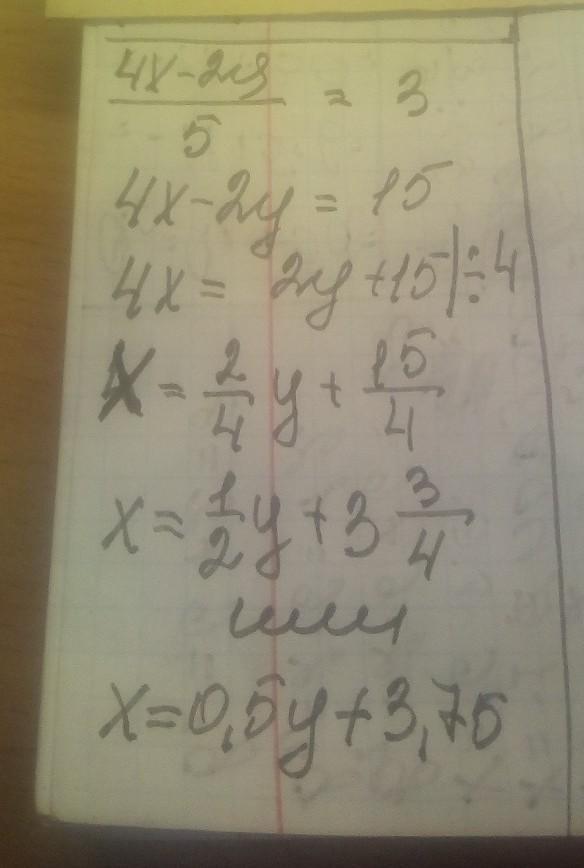 (4x-2y)/5 = 3
4x-2y = 15
4x = 2y+15|÷4
x = 2/4 y + 15/4
x = 1/2 y + 3 3/4
или
x=0,5y+3,75